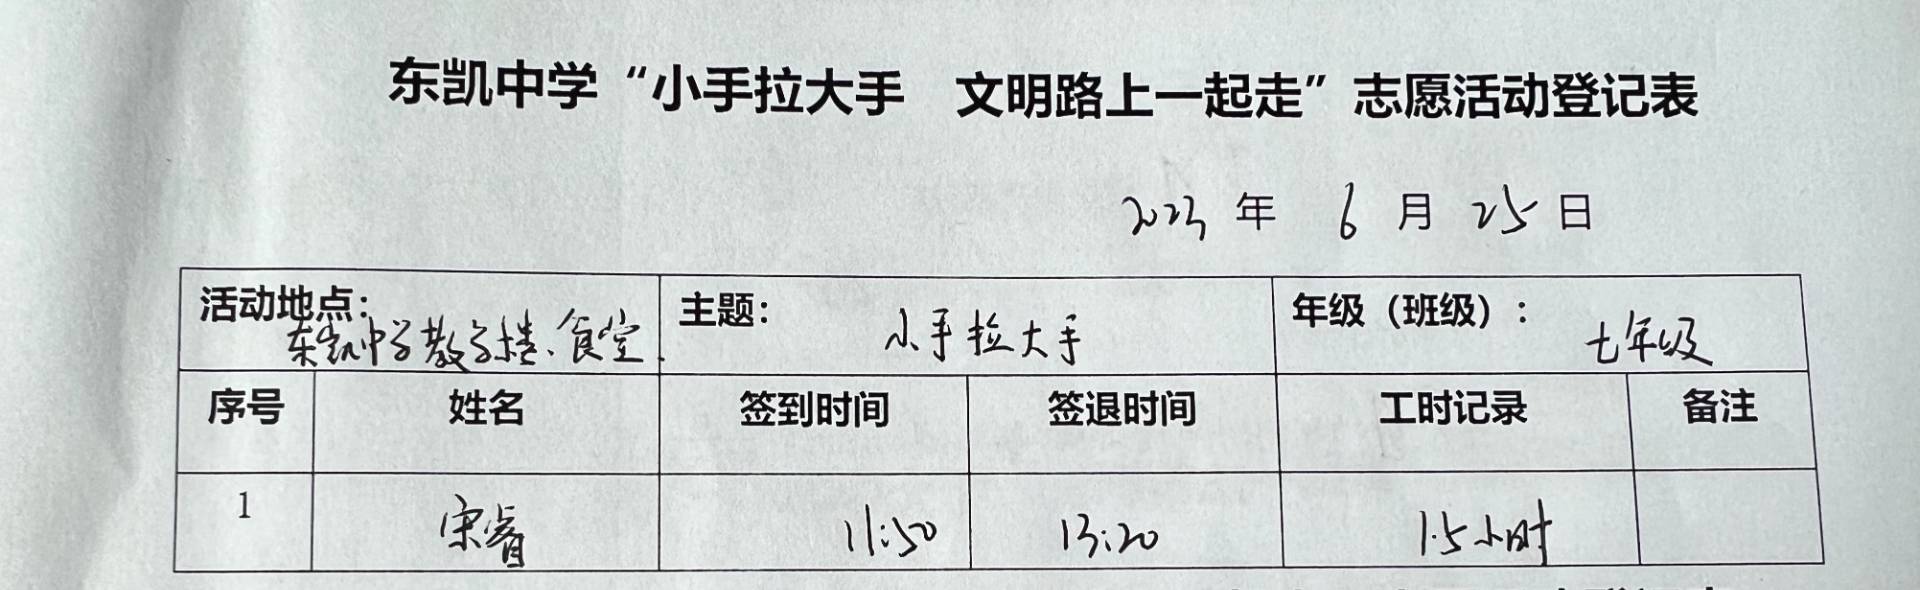 东凯中学“小手拉大手 文明路上一起走”志愿活动登记表
2023 年 6 月 25 日
活动地点: 东凯中学教学楼、食堂. 主题: 小手拉大手 年级（班级）: 七年级
序号 姓名 签到时间 签退时间 工时记录 备注
1 宋睿 11:50 13:20 1.5小时